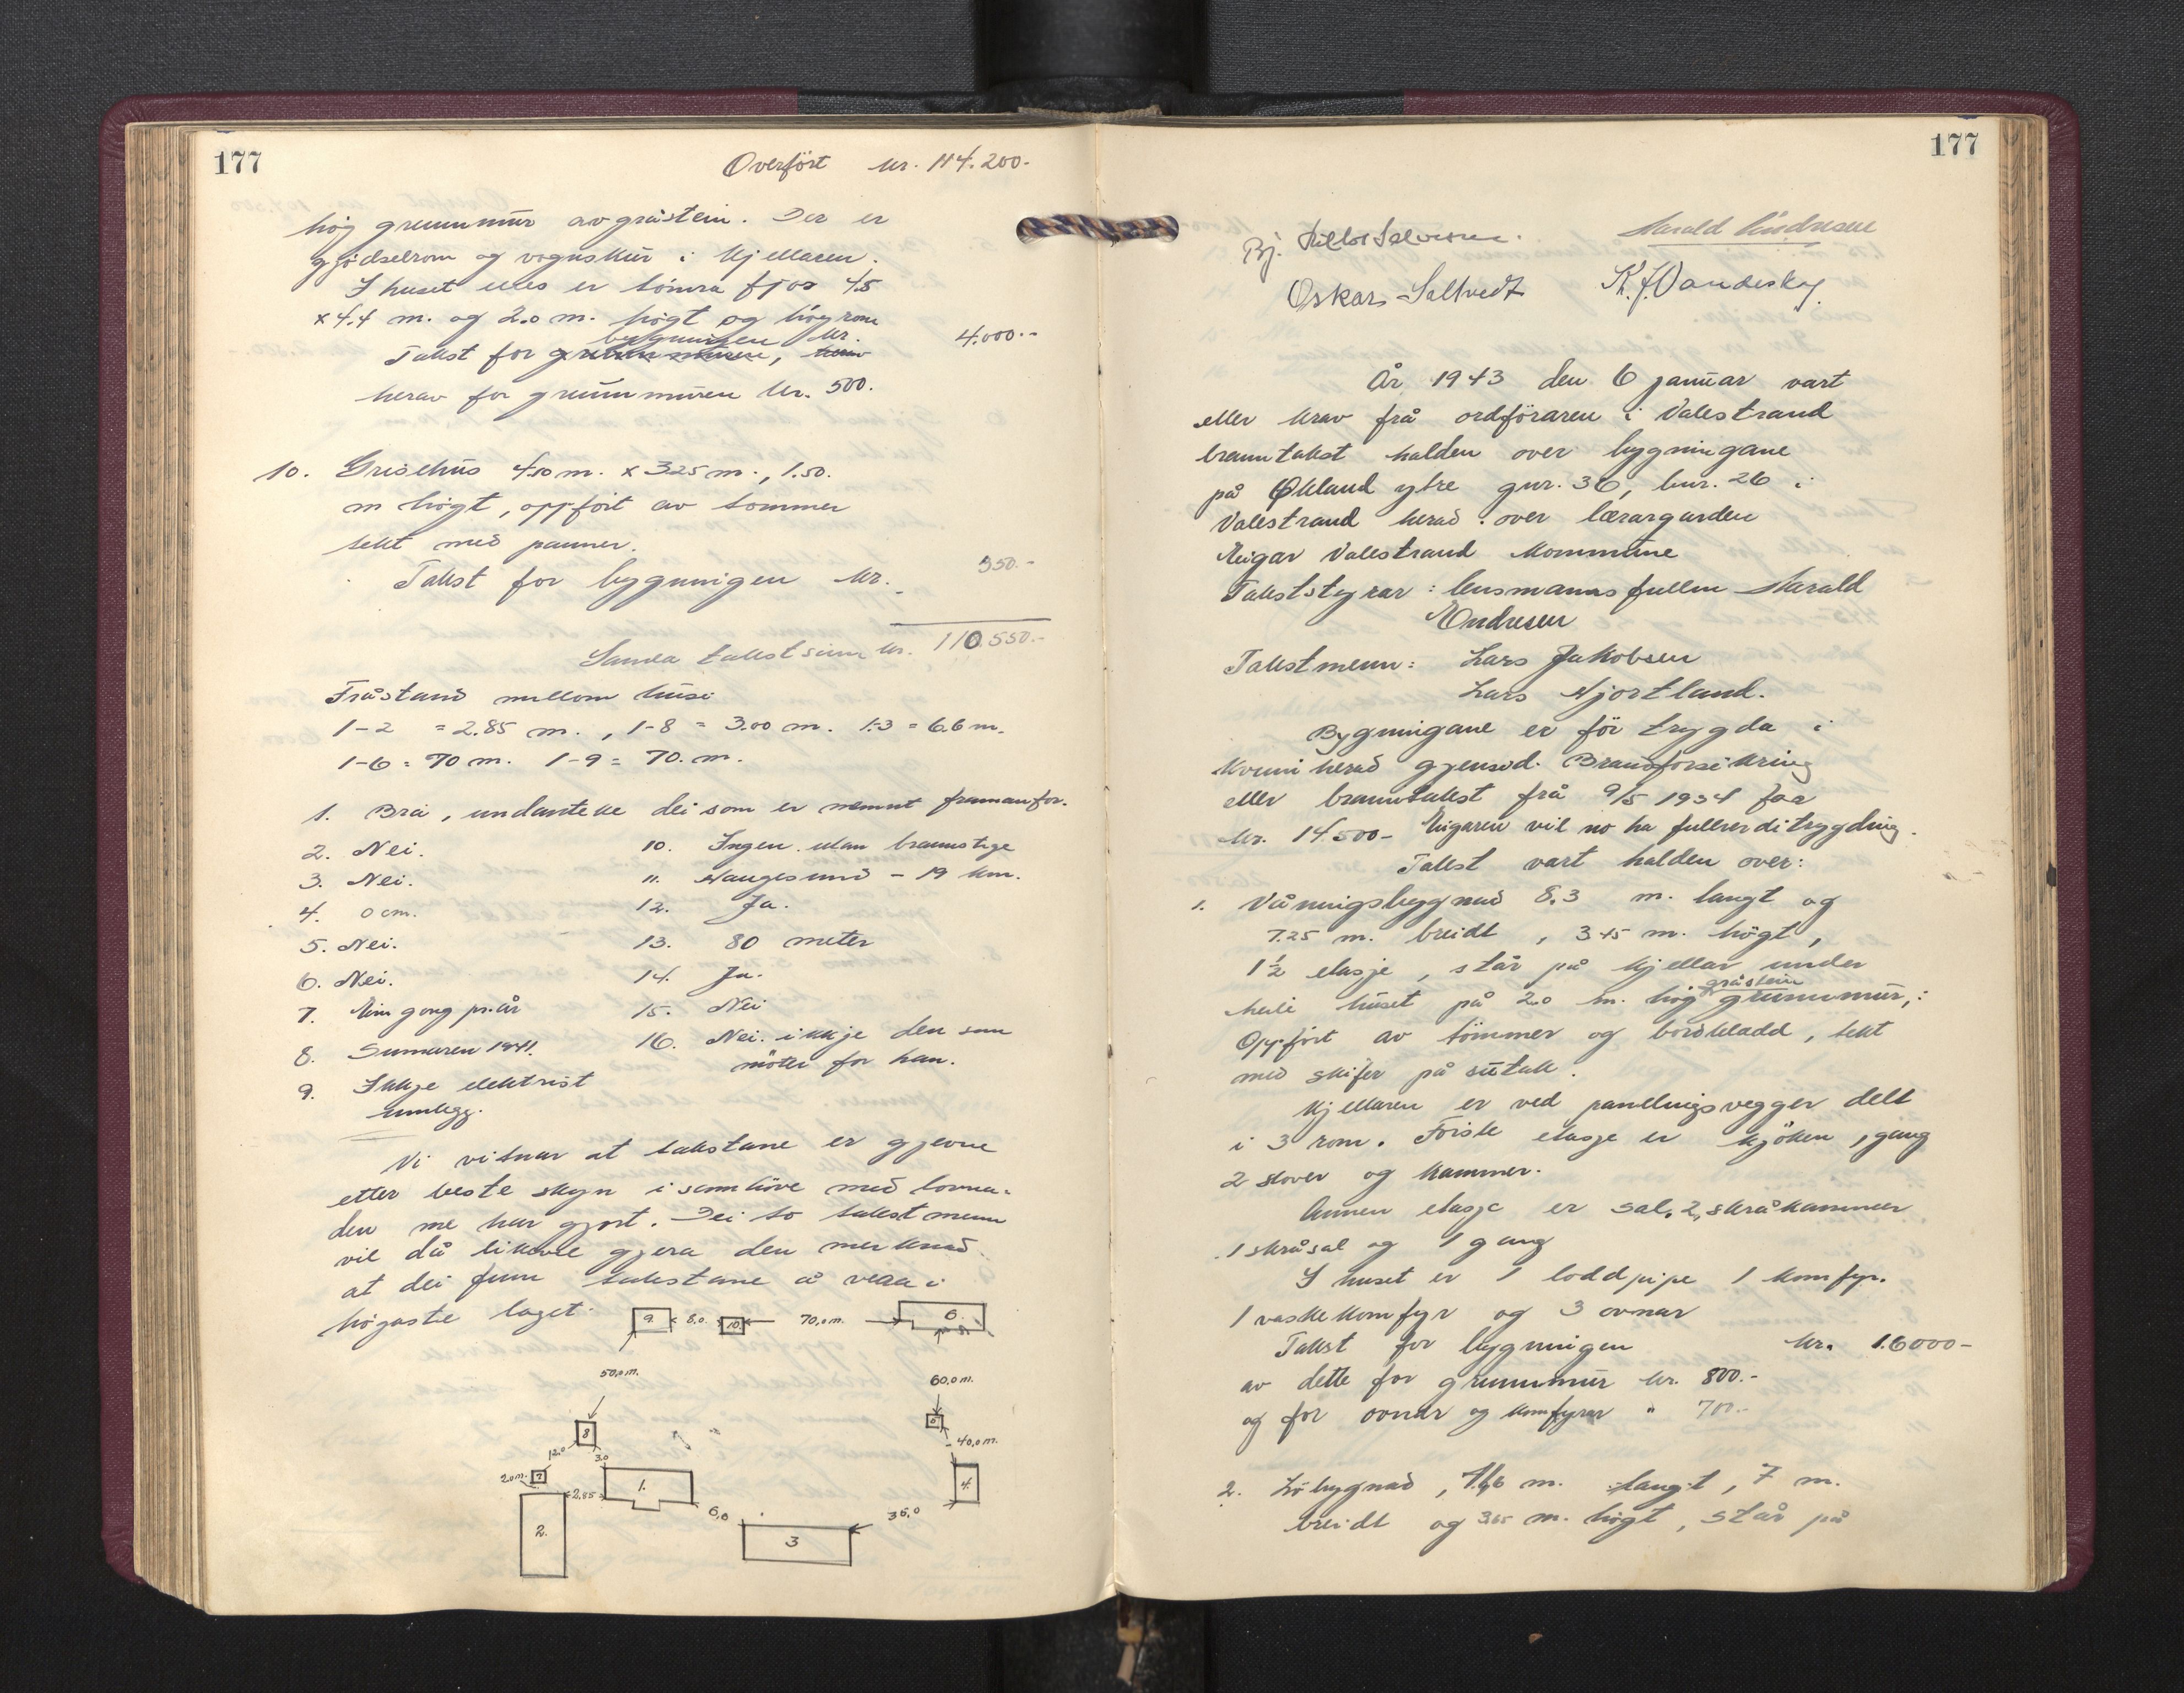 177
Overfört kr. 114.200.-
hög grunnmúr av gråstein. Der er
gjödselrom og vognskúr i kjellaren.
I huset elles er tömra fjos 4.5
x 4.4 m. og 2.0 m. högt og höyrom
bygningen kr.
Takst for grunnmúren, herav 4.000.--
herav for grunnmúren kr. 500.
10. Grisehús 4.50 m. x 3.25 m., 1.50.
m högt, oppfört av tömmer
tekt med panner.
Takst for bygningen kr. 350.-
Samla takstsúm kr. 110.550.-
Fråstand millom húsi
1-2 = 2.85 m., 1-8 = 3.00 m. 1-3 = 6.6 m.
1-6 = 70 m. 1-9 = 70. m.
1. Bra, undanteke dei som er nemnt framanfor.
2. Nei.
3. Nei.
4. 0 cm.
5. Nei.
6. Nei.
7. Ein gong pr. år
8. Sumaren 1941.
9. Ikkje elektrisk
innlegg.
10. Ingen utan brannstige
11. Haugesund - 19 km.
12. Ja.
13. 80 meter
14. Ja.
15. Nei
16. Nei. ikkje den som
möter for han.
Vi vitnar at takstane er gjevne
etter beste skyn i samhöve med lovna-
den me har gjort. Dei to takstmenn
vil då likevel gjera den merknad
at dei finn takstane å vera i
högaste laget.
9. 8,0. 10. 70,0 m. 6.
50,0 m. 60,0 m.
8 5
12.0 3.0 40,0 m.
2.0 m. 7 1. 4.
2,85
6,6 36,0
2. 3
177
Harald Endresen
Oskar Saltvedt K. J. Vandeskog
År 1943 den 6 januar vart
etter krav frå ordföraren i Valestrand
branntakst halden over bygningane
på Økland ytre gnr. 36, bnr. 26 i
Valestrand herad : over lærargarden
Eigar Valestrand kommune
Takststyrar : lensmannsfullm Harald
Endresen
Takstmenn: Lars Jakobsen
Lars Hjortland.
Bygningane er för trygda i
herad gjensid. Brannforsikring
etter branntakst frå 9/5 1934 for
kr. 14500- Eigaren vil no ha fullverditrygding.
Takst vart halden over:
1. Våningsbygnad 8.3 m. langt og
7.25 m. breidt, 3.45 m. högt,
1½ etasje, står på kjellar under
gråstein
heile húset på 2.0 m. hög grunnmúr,
Oppfört av tömmer og bordkledd, tekt
med skifer på sútak.
Kjellaren er ved panelingsvegger delt
i 3 rom. Förste etasje er kjöken, gang
2 stover og kammer.
Annen etasje er sal, 2 skråkammer
1 skråsal og 1 gang
I huset er 1 loddpipe 1 komfyr.
1 vaskekomfyr og 3 ovnar
Takst for bygningen kr. 16000-
av dette for grunnmúr kr. 800.-
og for ovnar og komfyrar " 700.-
2. Löbygnad, 16,6 m. langt, 7 m.
breidt og 3.65 m. högt, står på